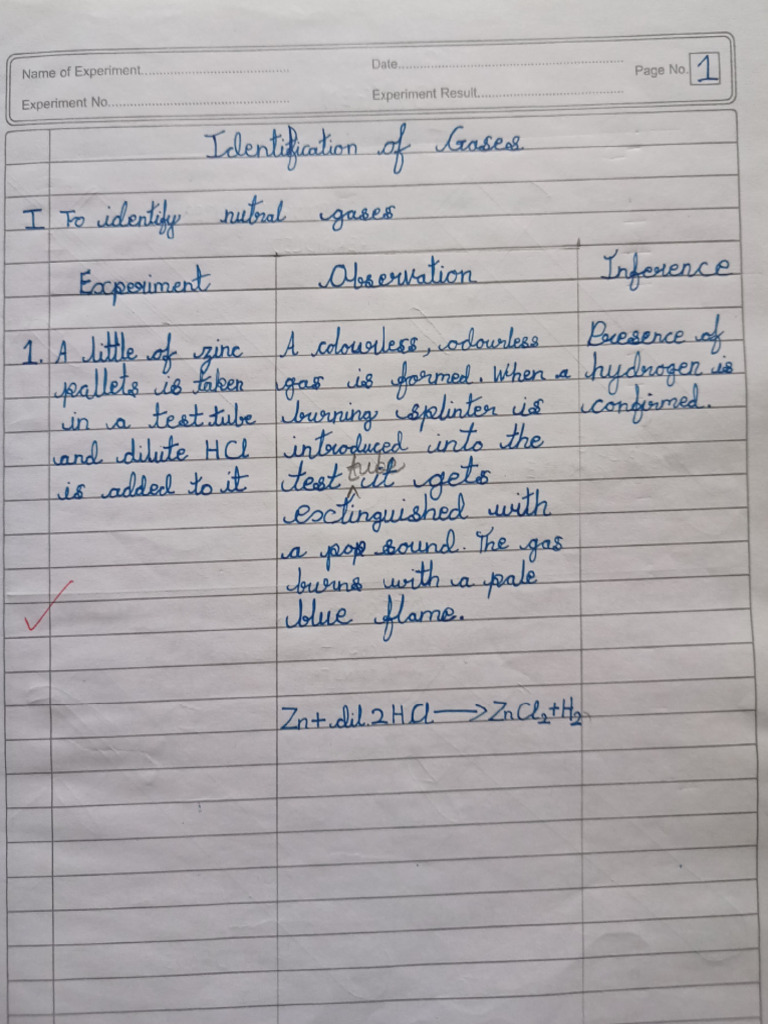 Name of Experiment........................ Date........................ Page No. 1
Experiment No........................ Experiment Result........................
Identification of Gases
I To identify nutral gases
Experiment Observation Inference
1. A little of zinc
pallets is taken
in a test tube
and dilute HCl
is added to it
A colourless, odourless
gas is formed. When a
burning splinter is
introduced into the
test tube it gets
extinguished with
a pop sound. The gas
burns with a pale
blue flame.
Zn + dil. 2HCl → ZnCl₂ + H₂
Presence of
hydrogen is
confirmed.